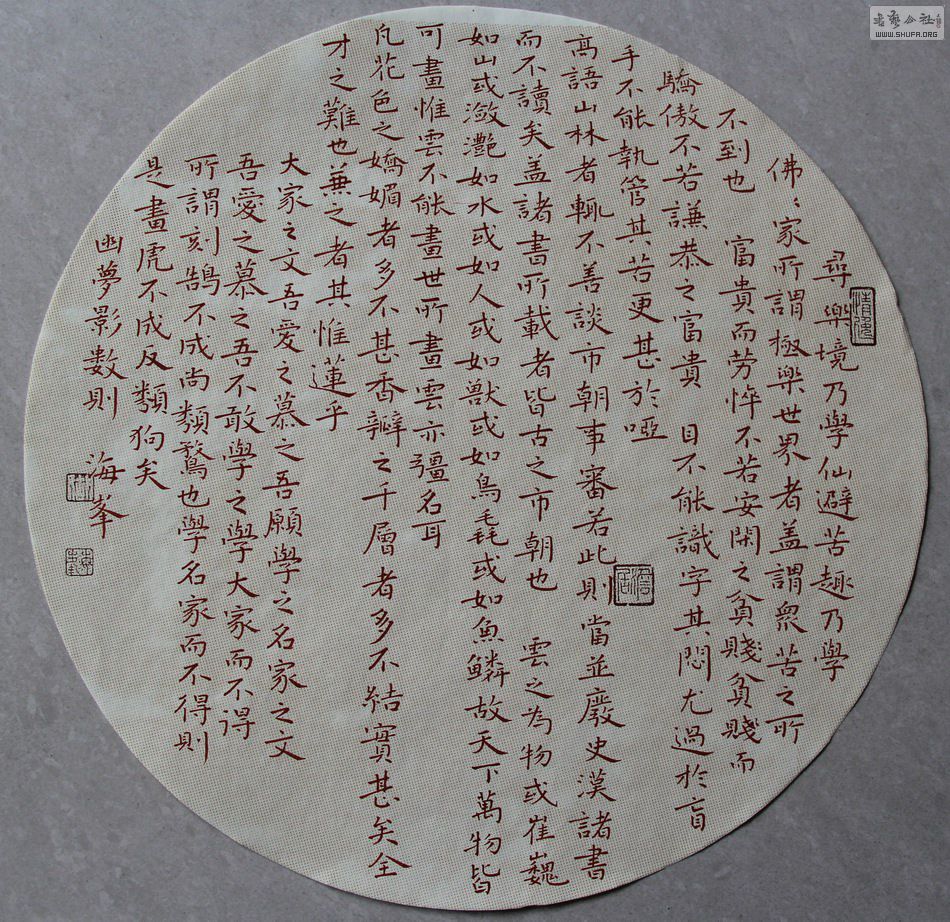 尋樂境乃學仙避苦趣乃學
佛〻家所謂極樂世界者盖謂衆苦之所
不到也 富貴而勞悴不若安閑之貧賤貧賤而
驕傲不若謙恭之富貴 目不能識字其悶尤過於盲
手不能執管其苦更甚於啞
高語山林者輒不善談市朝事審若此則當並廢史漢諸書
而不讀矣盖諸書所載者皆古之市朝也 雲之為物或崔巍
如山或瀲灧如水或如人或如獸或如鳥毳或如魚鱗故天下萬物皆
可畫惟雲不能畫世所畫雲亦彊名耳
凡花色之嬌媚者多不甚香瓣之千層者多不結實甚矣全
才之難也兼之者其惟蓮乎
大家之文吾愛之慕之吾願學之名家之文
吾愛之慕之吾不敢學之學大家而不得
所謂刻鵠不成尚類鶩也學名家而不得則
是畫虎不成反類狗矣
幽夢影數則 海峯
書藝公社
WWW.SHUFA.ORG